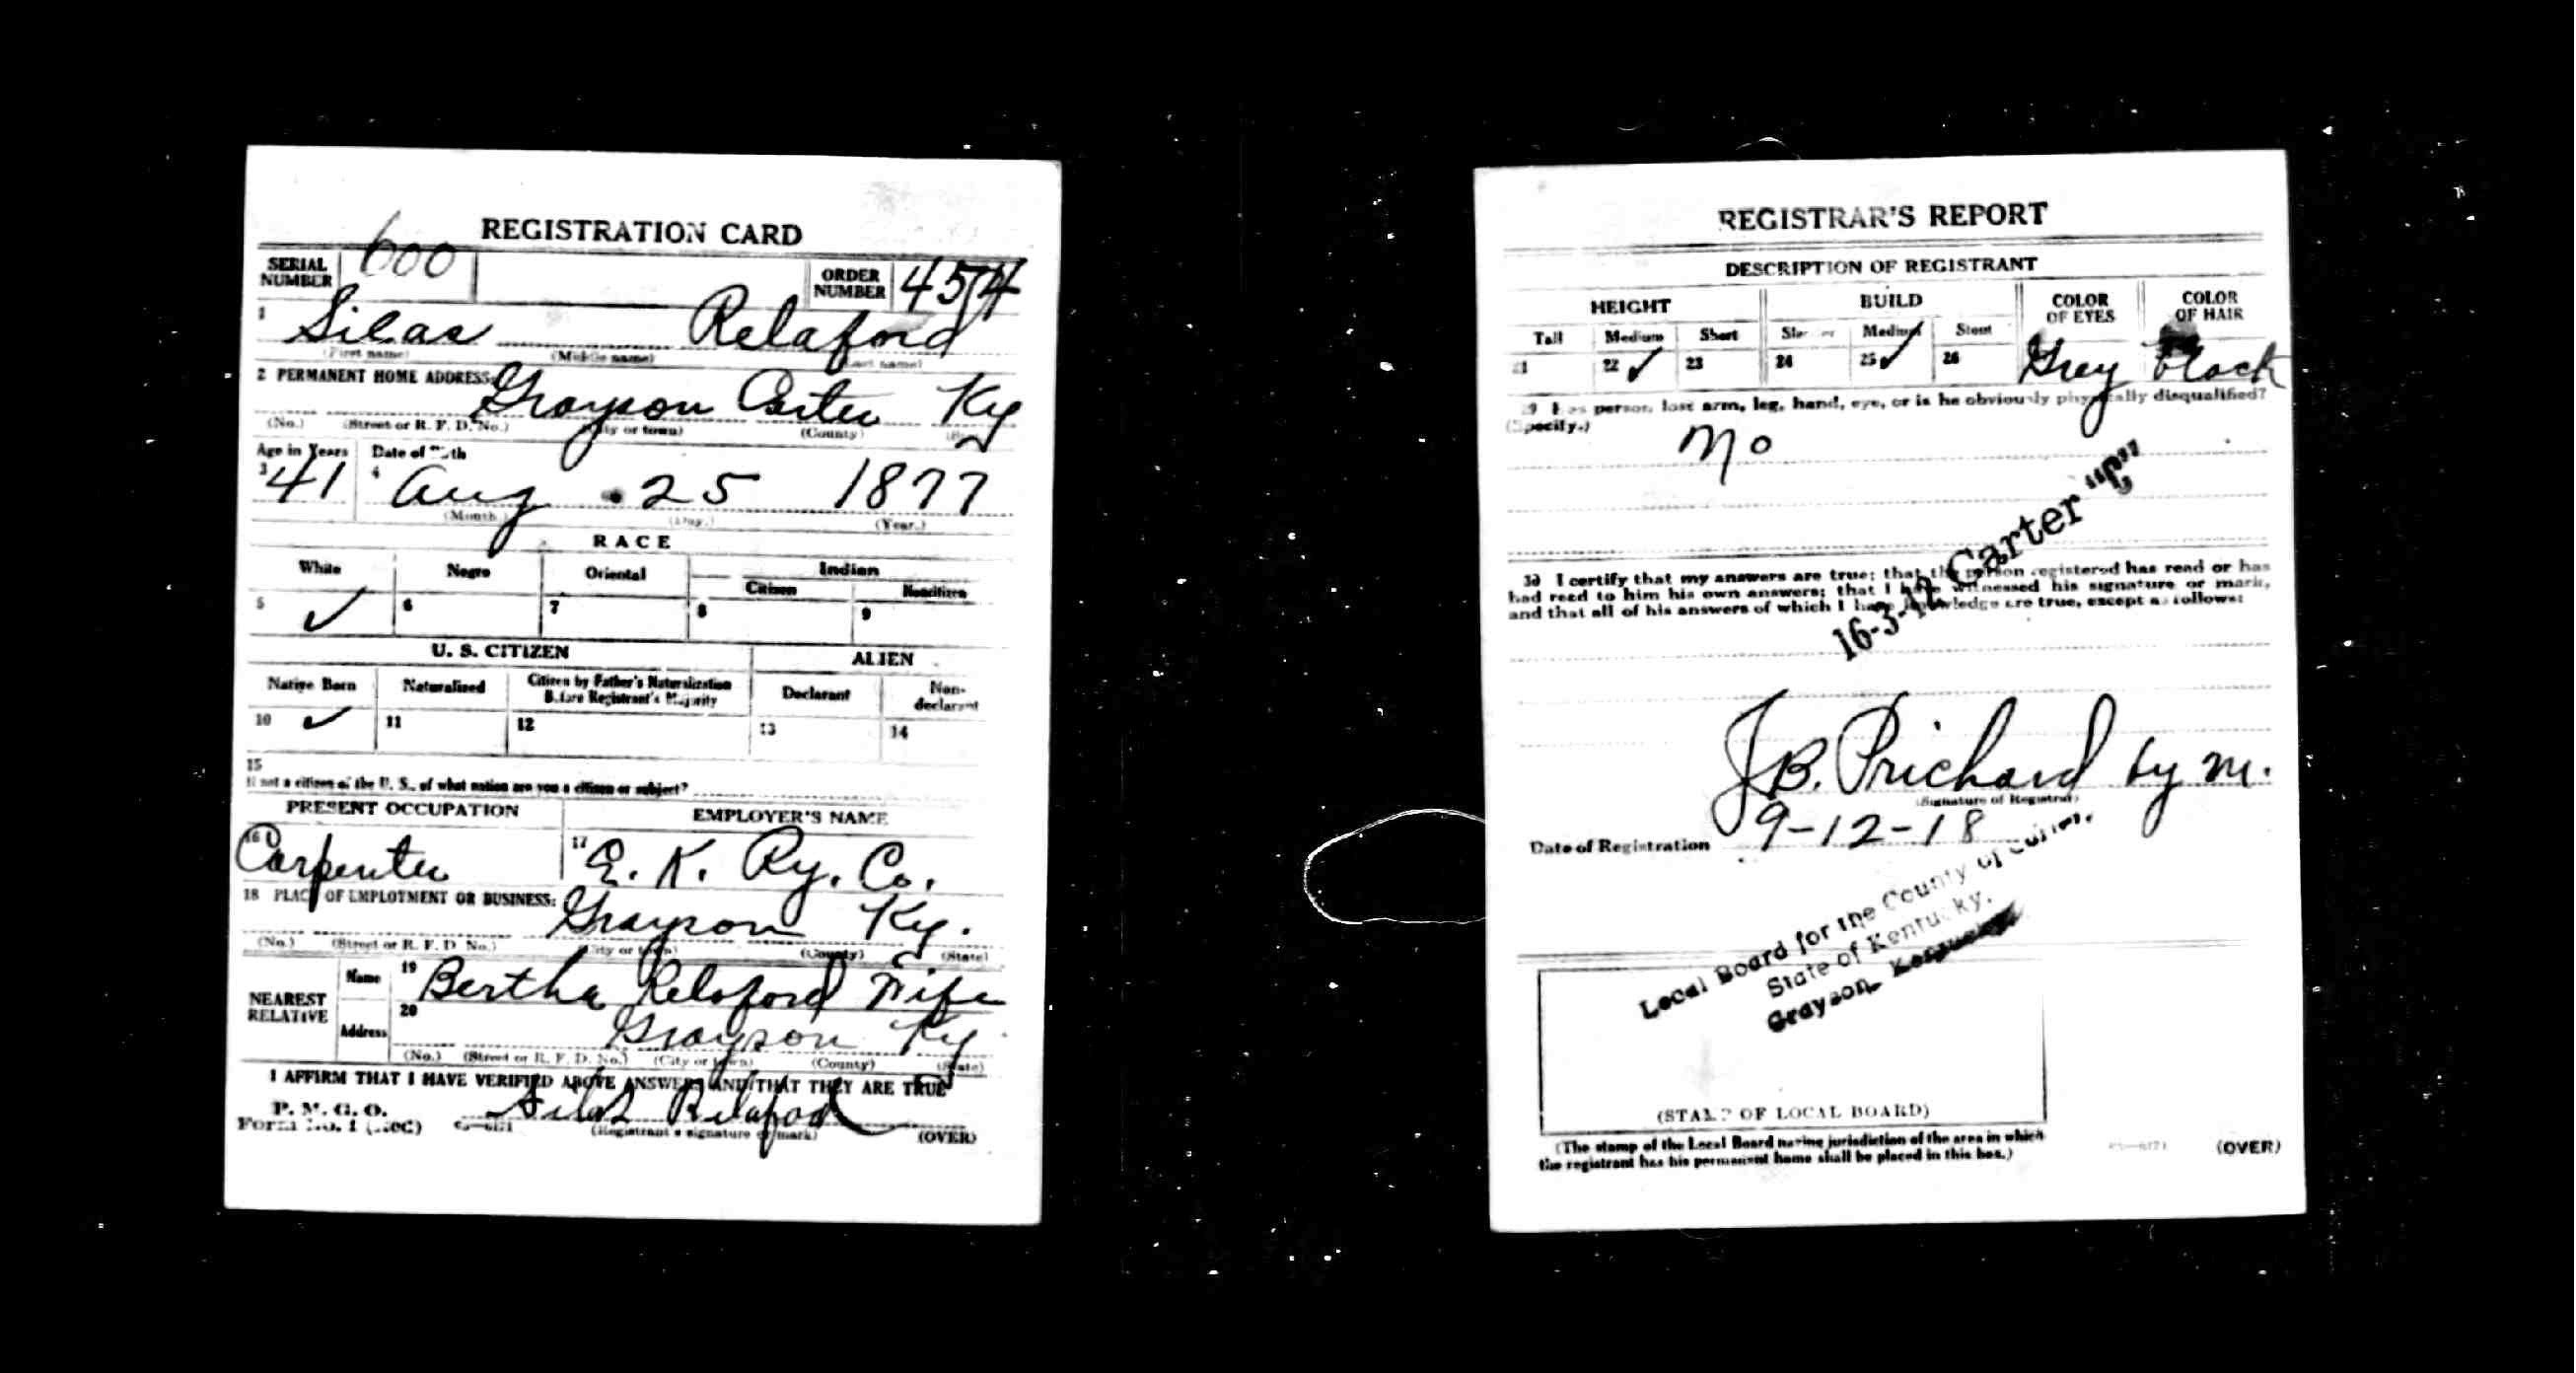 REGISTRATION CARD
SERIAL NUMBER 600 ORDER NUMBER 454
1 Silas Relaford
(First name) (Middle name) (Last name)
2 PERMANENT HOME ADDRESS:
Grayson Carter Ky
(No.) (Street or R. F. D. No.) (City or town) (County)
Age in Years Date of Birth
3 41 4 Aug 25 1877
(Month) (Day.) (Year.)
RACE
White Negro Oriental Indian
Citizen Noncitizen
5 ✓ 6 7 8 9
U. S. CITIZEN ALIEN
Native Born Naturalized Citizen by Father's Naturalization Before Registrant's Majority Declarant Non-declarant
10 ✓ 11 12 13 14
15
If not a citizen of the U. S., of what nation are you a citizen or subject?
PRESENT OCCUPATION EMPLOYER'S NAME
16 Carpenter 17 E. K. Ry. Co.
18 PLACE OF EMPLOYMENT OR BUSINESS:
Grayson Ky.
(No.) (Street or R. F. D. No.) (City or town) (County) (State)
NEAREST RELATIVE Name 19 Bertha Relaford Wife
Address 20 Grayson Ky
(No.) (Street or R. F. D. No.) (City or town) (County) (State)
I AFFIRM THAT I HAVE VERIFIED ABOVE ANSWERS AND THAT THEY ARE TRUE
P. M. G. O.
Form No. 1 (Red) Silas Relafod
(Registrant's signature or mark) (OVER)
REGISTRAR'S REPORT
DESCRIPTION OF REGISTRANT
HEIGHT BUILD COLOR OF EYES COLOR OF HAIR
Tall Medium Short Slender Medium Stout
21 22 ✓ 23 24 25 ✓ 26 Grey Black
29 Has person lost arm, leg, hand, eye, or is he obviously physically disqualified?
(Specify.) No
16-3-12 Carter "C"
30 I certify that my answers are true; that the person registered has read or has
had read to him his own answers; that I have witnessed his signature or mark,
and that all of his answers of which I have knowledge are true, except as follows:
J.B. Prichard by M.
(Signature of Registrar)
Date of Registration 9-12-18
Local Board for the County of Carter,
State of Kentucky.
Grayson, Kentucky
(STAMP OF LOCAL BOARD)
(The stamp of the Local Board having jurisdiction of the area in which
the registrant has his permanent home shall be placed in this box.)
(OVER)